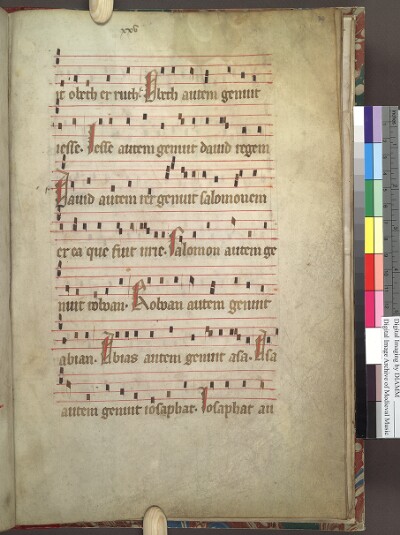 xxv
it obeth ex ruth. Obeth autem genuit
iesse. Iesse autem genuit david regem
David autem rex genuit salomonem
ex ea que fuit urie. Salomon autem ge
nuit roboan. Roboan autem genuit
abian. Abias autem genuit asa. Asa
autem genuit iosaphat. Iosaphat au
Digital Imaging by DIAMM
Digital Image Archive of Medieval Music